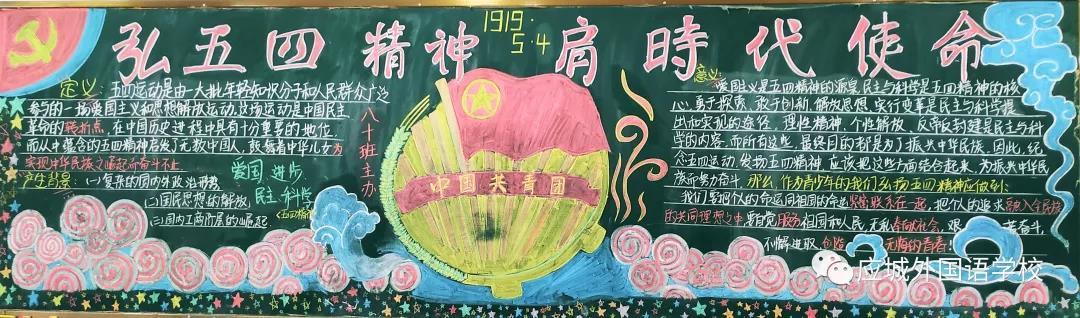 弘五四精神肩時代使命
1919.
5.4
定义:五四运动是由一大批年轻知识分子和人民群众广泛
参与的一场爱国主义和思想解放运动,这场运动是中国民主
革命的转折点,在中国历史进程中具有十分重要的地位。
而从中蕴含的五四精神启发了无数中国人,鼓舞着中华儿女为
实现中华民族之崛起而奋斗不止
产生背景:(一)复杂的国内外政治形势
(二)国民思想的解放
(三)国内工商阶层的崛起
爱国 进步
民主 科学
八十班主办
中国共青团
意义:爱国主义是五四精神的源泉,民主与科学是五四精神的核
心,勇于探索、敢于创新、解放思想、实行变革是民主与科学提
出和实现的途径,理性精神、个性解放、反帝反封建是民主与科
学的内容,而所有这些,最终目的都是为了振兴中华民族。因此,纪
念五四运动,发扬五四精神,应该把这些方面结合起来,为振兴中华民
族而努力奋斗。那么,作为青少年的我们弘扬五四精神应做到:
我们要把个人的命运同祖国的命运紧密联系在一起,把个人的追求融入全民族
的共同理想之中,要自觉服务祖国和人民,无私奉献社会,艰苦奋斗,
不懈进取,创造无悔的青春!
应城外国语学校